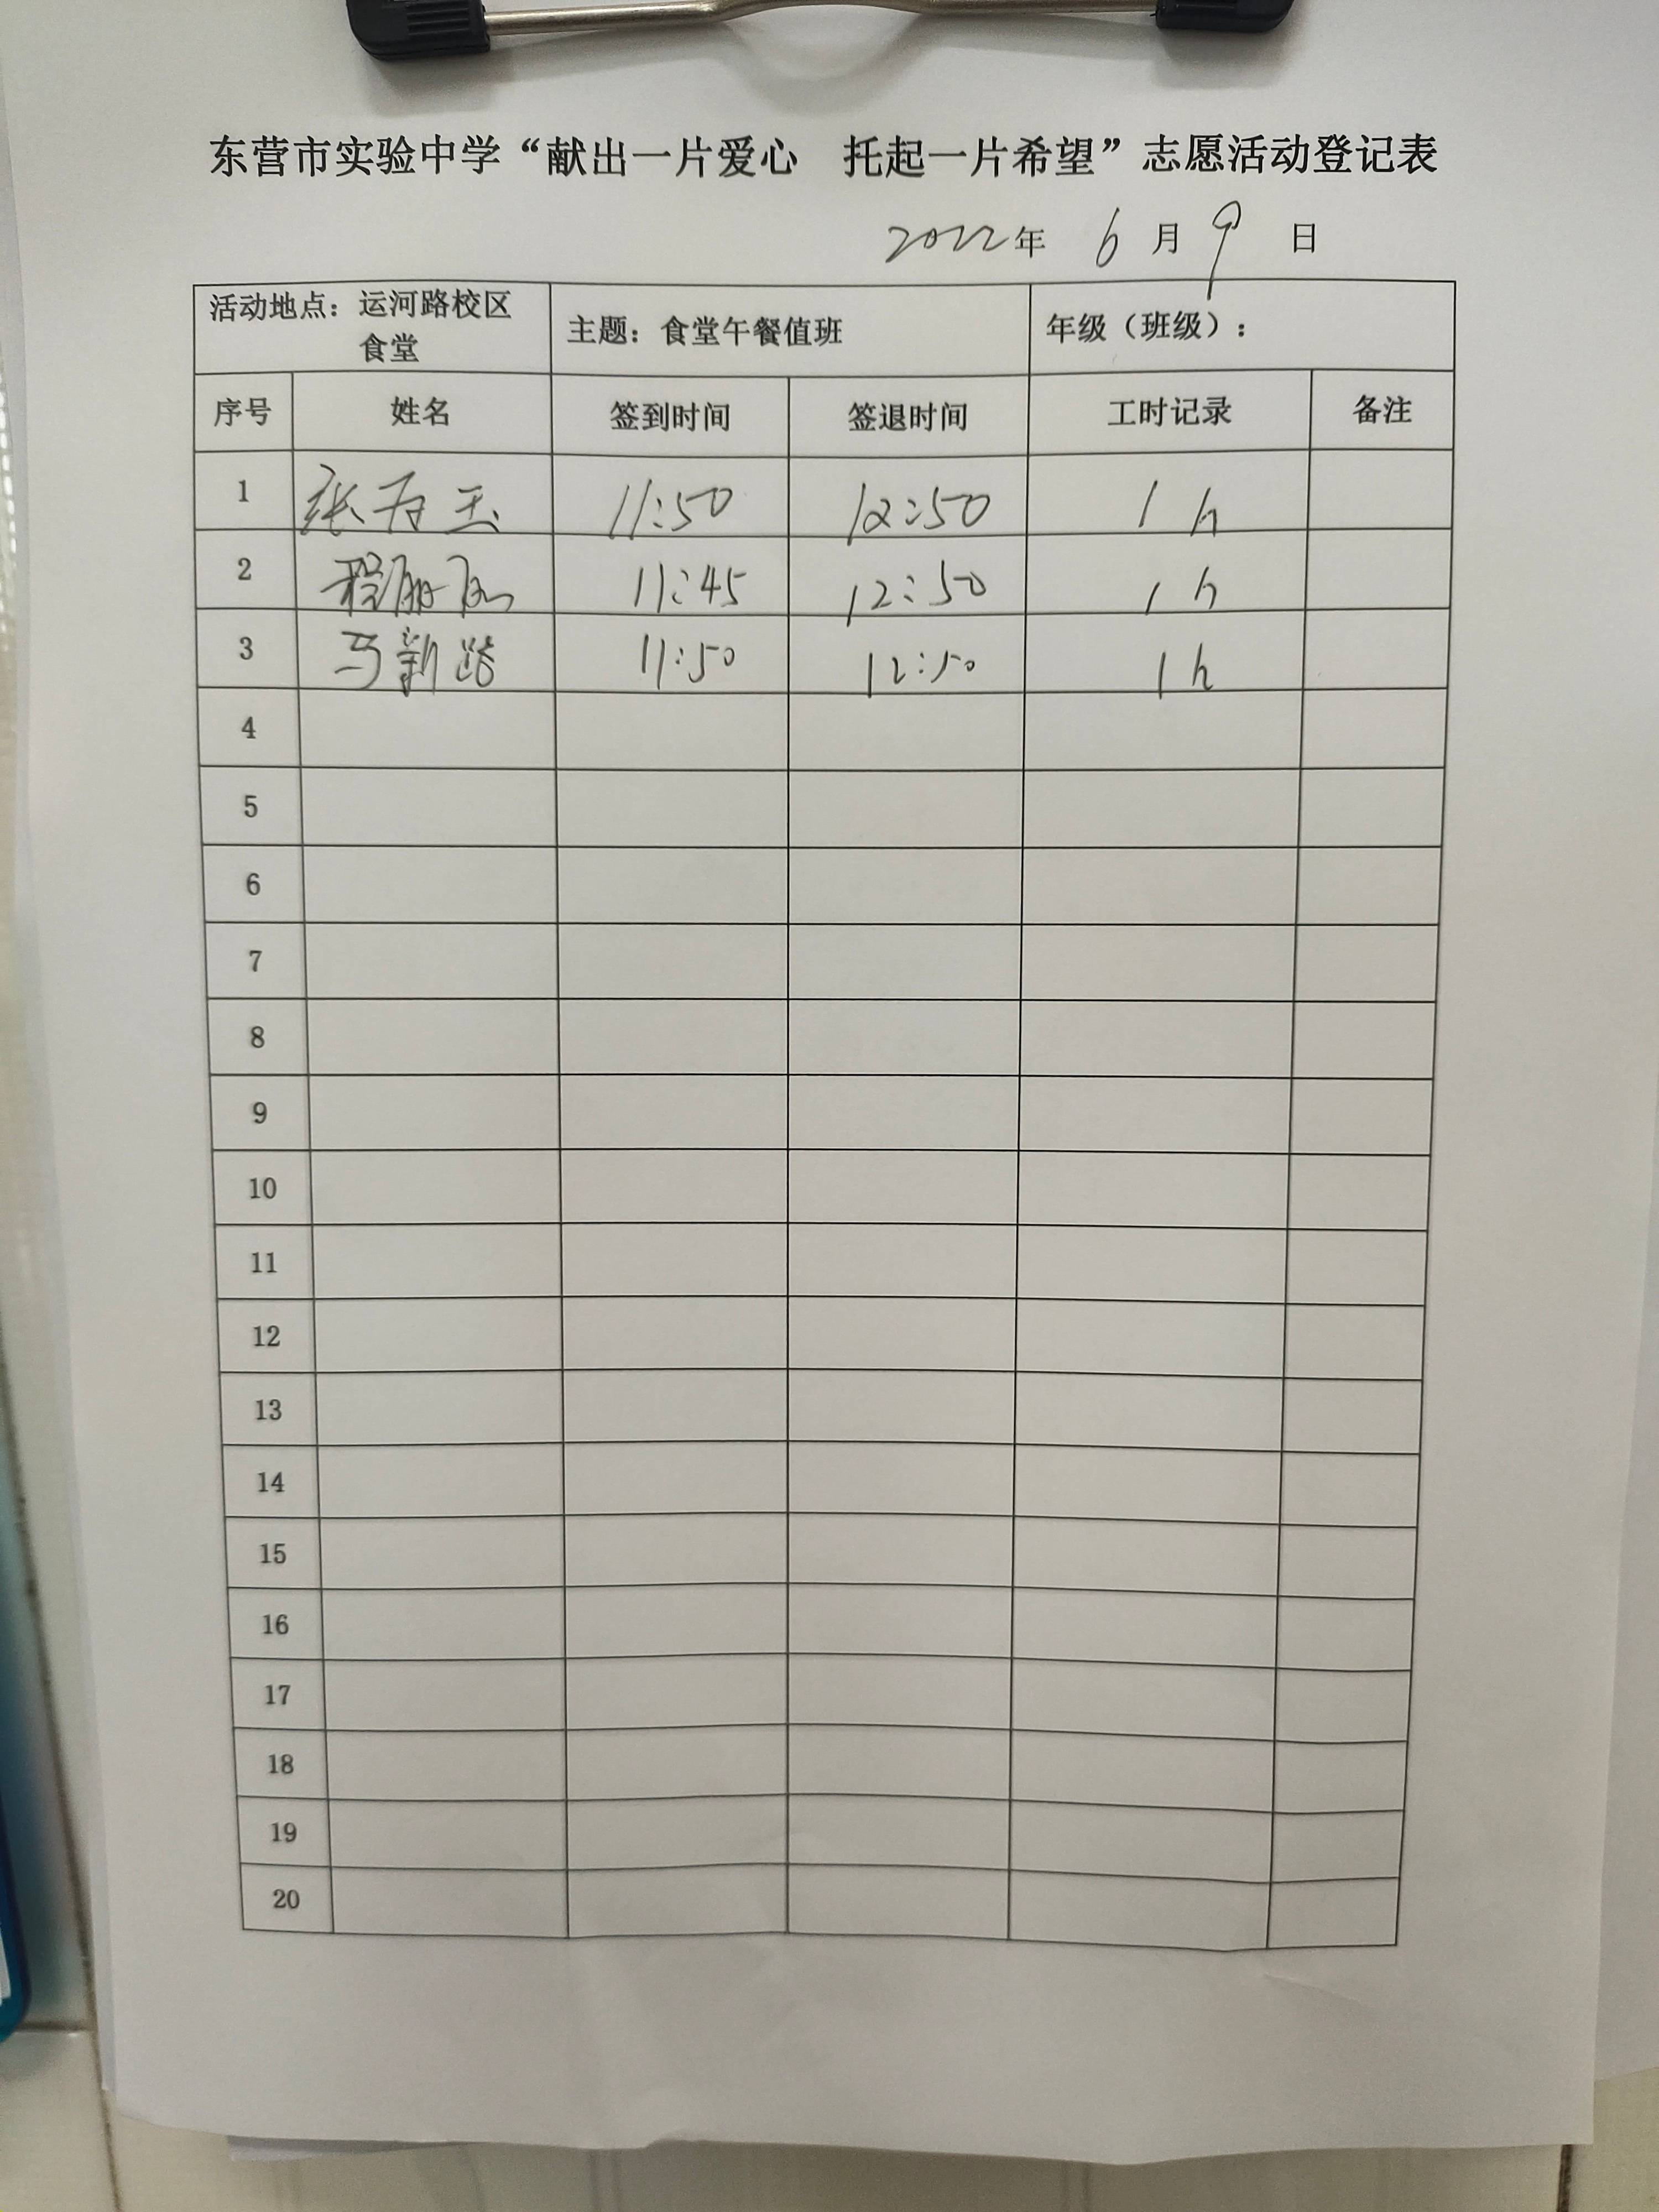 东营市实验中学“献出一片爱心 托起一片希望”志愿活动登记表
2022年 6 月 9 日
活动地点：运河路校区 食堂 主题：食堂午餐值班 年级（班级）：
序号 姓名 签到时间 签退时间 工时记录 备注
1 张 玉 11:50 12:50 1 h
2 程丽 11:45 12:50 1 h
3 马新路 11:50 12:50 1 h
4
5
6
7
8
9
10
11
12
13
14
15
16
17
18
19
20